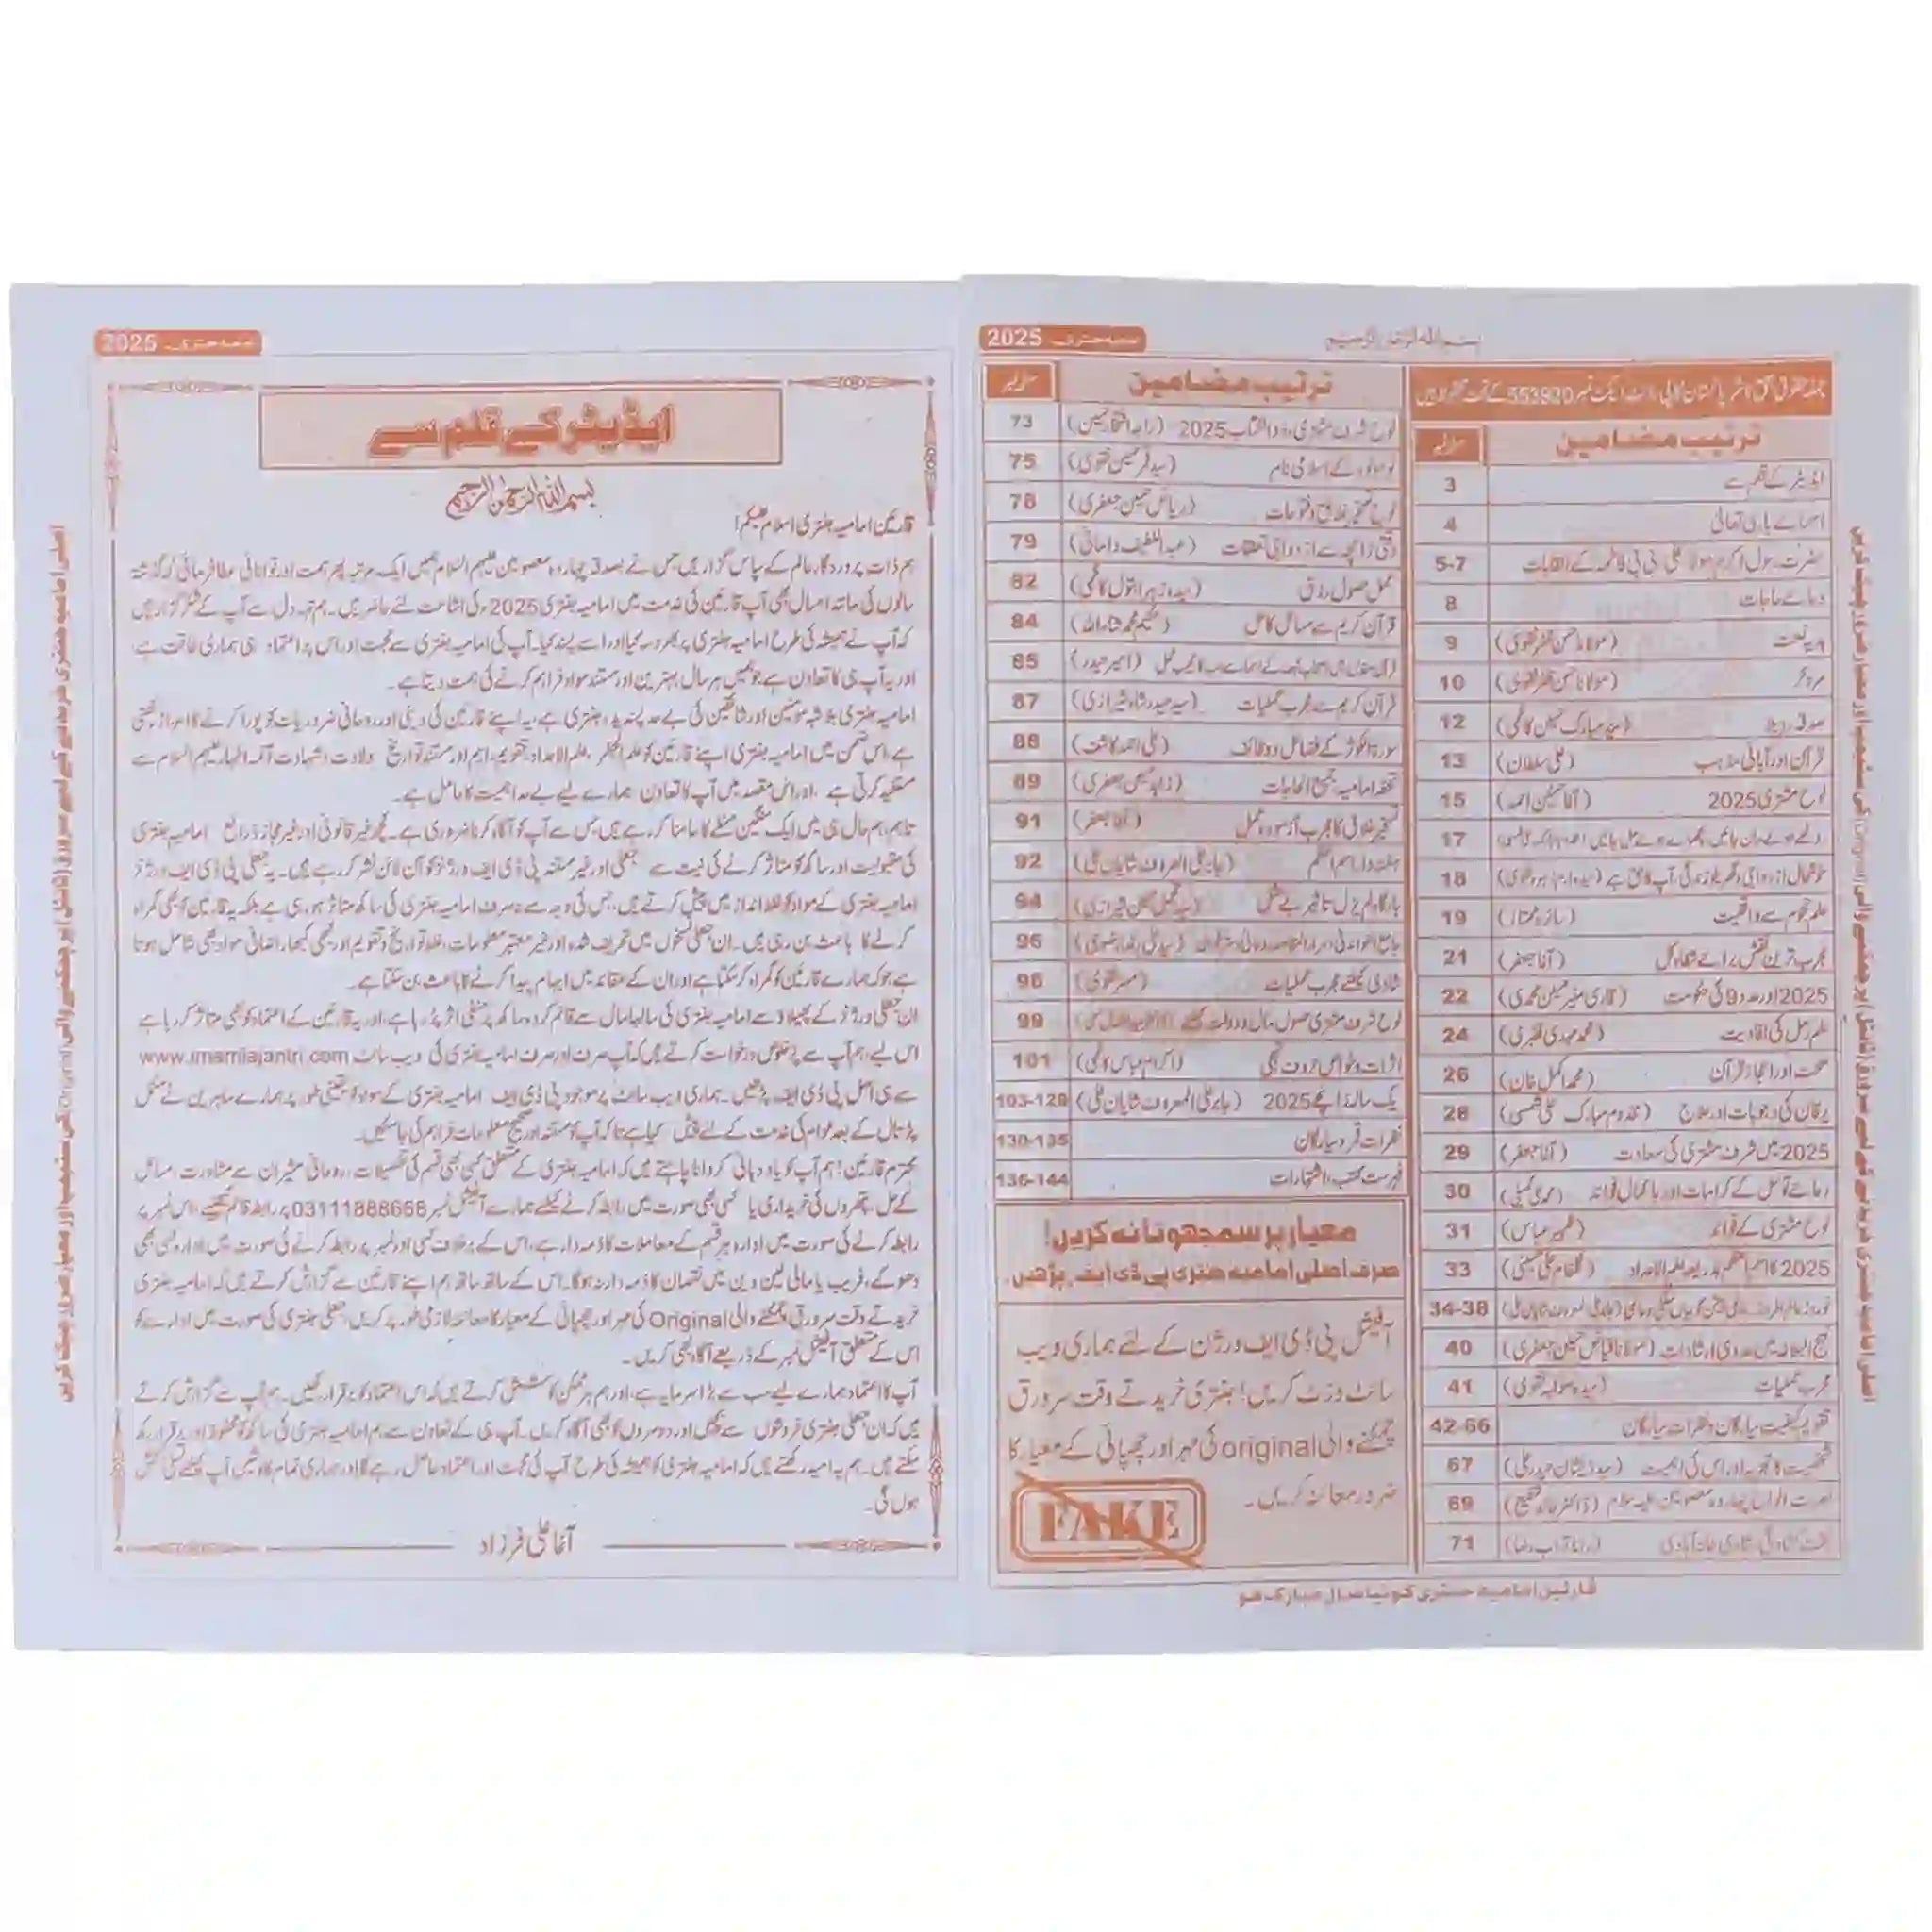 بسم الله الرحمن الرحیم
2025
ترتیب مضامین
3 ایڈیٹر کے قلم سے
4 اسمائے باری تعالیٰ
5-7 حضرت رسول اکرم مولا علی بی بی فاطمہ کے القابات
8 دعائے حاجات
9 (مولانا حسن ظفر نقوی)
10 (مولانا حسن ظفر نقوی)
12 (سید مبارک حسین کاظمی)
13 قرآن اور آبائی مذہب (علی سلطان)
15 لوح مشتری 2025 (آغا حسنین احمد)
17
18
19 علم نجوم سے واقفیت (سائرہ ممتاز)
21 مجرب ترین نقش برائے شفاء کل (آغا جعفر)
22 2025 اور عدد 9 کی حکومت
24 علم رمل کی افادیت (محمد مہدی قنبری)
26 صحت اور اعجاز قرآن (محمد اکمل خان)
28 یرقان کی وجوہات اور علاج
29 2025 میں شرف مشتری کی سعادت (آغا جعفر)
30 دعائے توسل کے کرامات اور باکمال فوائد
31 لوح مشتری کے فوائد (ظہیر عباس)
33 2025 کا اسم اعظم بذریعہ علم الاعداد
34-38
40 نہج البلاغہ میں عددی ارشادات (مولانا فیاض حسین جعفری)
41 مجرب عملیات
42-66 تقویم کیفیت سیارگان و نظرات سیارگان
67 شخصیت کا تجزیہ اور اس کی اہمیت (سید ذیشان حیدر علی)
69
71
2025
ترتیب مضامین
73 لوح شرف مشتری 2025 (راجہ افتخار حسین)
75 نومولود کے اسلامی نام (سید قمر حسنین نقوی)
78 لوح تسخیر خلائق و فتوحات (ریاض حسین جعفری)
79 وقتی زائچہ سے ازدواجی تعلقات (عبداللطیف دامانی)
82 عمل حصول رزق (سیدہ زہرا بتول کاظمی)
84 قرآن کریم سے مسائل کا حل (حکیم محمد ثناء اللہ)
85 (امیر حیدر)
87 قرآن کریم سے مجرب عملیات (سید حیدر شاہ شیرازی)
88 سورۃ الکوثر کے فضائل و وظائف (علی احمد کاشف)
89 تحفہ امامیہ جمیع الحاجات (زاہد حسین جعفری)
91 تسخیر خلائق کا مجرب آزمودہ عمل (آغا جعفر)
92 (جابر علی المعروف شایان علی)
94
96
98 شادی کیلئے مجرب عملیات
99 لوح شرف مشتری حصول مال و دولت کیلئے
101 (اکرام عباس کاظمی)
103-129 یک سالہ زائچے 2025 (جابر علی المعروف شایان علی)
130-135 نظرات قمر و سیارگان
136-144 فہرست کتب، اشتہارات
معیار پر سمجھوتا نہ کریں!
صرف اصلی امامیہ جنتری پی ڈی ایف پڑھیں۔
آفیشل پی ڈی ایف ورژن کے لئے ہماری ویب
سائٹ وزٹ کریں! جنتری خریدتے وقت سرورق
چمکنے والی original کی مہر اور چھپائی کے معیار کا
ضرور معائنہ کریں۔
FAKE
قارئین امامیہ جنتری کو نیا سال مبارک ہو
2025
ایڈیٹر کے قلم سے
بسم اللہ الرحمٰن الرحیم
قارئین امامیہ جنتری اسلام علیکم!
ہم ذات پروردگار عالم کے سپاس گزار ہیں جس نے بصدقہ چہاردہ معصومین علیہم السلام ہمیں ایک مرتبہ پھر ہمت اور توانائی عطا فرمائی کہ گذشتہ
سالوں کی مانند امسال بھی آپ قارئین کی خدمت میں امامیہ جنتری 2025ء کی اشاعت لئے حاضر ہیں۔ ہم تہہ دل سے آپ کے شکر گزار ہیں
کہ آپ نے ہمیشہ کی طرح امامیہ جنتری پر بھروسہ کیا اور اسے پسند کیا۔ آپ کی امامیہ جنتری سے محبت اور اس پر اعتماد ہی ہماری طاقت ہے،
اور یہ آپ ہی کا تعاون ہے جو ہمیں ہر سال بہترین اور مستند مواد فراہم کرنے کی ہمت دیتا ہے۔
امامیہ جنتری بلاشبہ مومنین اور شائقین کی بے حد پسندیدہ جنتری ہے، یہ اپنے قارئین کی دینی اور روحانی ضروریات کو پورا کرنے کا اعزاز رکھتی
ہے، اس ضمن میں امامیہ جنتری اپنے قارئین کو علم الجفر، علم الاعداد، تقویم، اہم اور مستند تواریخ ولادت و شہادت آئمہ اطہار علیہم السلام سے
مستفید کرتی ہے، اور اس مقصد میں آپ کا تعاون ہمارے لیے بے حد اہمیت کا حامل ہے۔
تاہم، ہم حال ہی میں ایک سنگین مسئلے کا سامنا کر رہے ہیں جس سے آپ کو آگاہ کرنا ضروری ہے۔ کچھ غیر قانونی اور غیر مجاز ذرائع امامیہ جنتری
کی مقبولیت اور ساکھ کو متاثر کرنے کی نیت سے جعلی اور غیر مستند پی ڈی ایف ورژنز کو آن لائن نشر کر رہے ہیں۔ یہ جعلی پی ڈی ایف ورژنز
امامیہ جنتری کے مواد کو غلط انداز میں پیش کرتے ہیں، جس کی وجہ سے نہ صرف امامیہ جنتری کی ساکھ متاثر ہو رہی ہے بلکہ یہ قارئین کو بھی گمراہ
کرنے کا باعث بن رہی ہیں۔ ان جعلی نسخوں میں تحریف شدہ اور غیر معتبر معلومات، غلط تواریخ و تقویم اور کبھی کبھار اضافی مواد بھی شامل ہوتا
ہے جو کہ ہمارے قارئین کو گمراہ کر سکتا ہے اور ان کے عقائد میں ابہام پیدا کرنے کا باعث بن سکتا ہے۔
ان جعلی ورژنز کے پھیلاؤ سے امامیہ جنتری کی سالہا سال سے قائم کردہ ساکھ پر منفی اثر پڑ رہا ہے، اور یہ قارئین کے اعتماد کو بھی متاثر کر رہا ہے
اس لیے، ہم آپ سے پرخلوص درخواست کرتے ہیں کہ آپ صرف اور صرف امامیہ جنتری کی ویب سائٹ www.imamiajantri.com
سے ہی اصل پی ڈی ایف پڑھیں۔ ہماری ویب سائٹ پر موجود پی ڈی ایف امامیہ جنتری کے مواد کو یقینی طور پر ہمارے ماہرین نے مکمل
پڑتال کے بعد عوام کی خدمت کے لئے پیش کیا ہے تاکہ آپ کو مستند اور صحیح معلومات فراہم کی جا سکیں۔
محترم قارئین! ہم آپ کو یاد دہانی کروانا چاہتے ہیں کہ امامیہ جنتری کے متعلق کسی بھی قسم کی تفصیلات، روحانی مشیران سے مشاورت، مسائل
کے حل، پتھروں کی خریداری یا کسی بھی صورت میں رابطہ کرنے کیلئے ہمارے آفیشل نمبر 03111888668 پر رابطہ قائم کیجئے، اس نمبر پر
رابطہ کرنے کی صورت میں ادارہ ہر قسم کے معاملات کا ذمہ دار ہے، اس کے برخلاف کسی اور نمبر پر رابطہ کرنے کی صورت میں ادارہ کسی بھی
دھوکے، فریب یا مالی لین دین میں نقصان کا ذمہ دار نہ ہوگا۔ اس کے ساتھ ساتھ ہم اپنے قارئین سے گزارش کرتے ہیں کہ امامیہ جنتری
خریدتے وقت سرورق پر چمکنے والی Original کی مہر اور چھپائی کے معیار کا معائنہ لازمی طور پر کریں، جعلی جنتری کی صورت میں ادارے کو
اس کے متعلق آفیشل نمبر کے ذریعے آگاہ بھی کریں۔
آپ کا اعتماد ہمارے لیے سب سے بڑا سرمایہ ہے، اور ہم ہر ممکن کوشش کرتے ہیں کہ اس اعتماد کو برقرار رکھیں۔ ہم آپ سے گزارش کرتے
ہیں کہ ان جعلی جنتری فروشوں سے بچیں اور دوسروں کو بھی آگاہ کریں۔ آپ ہی کے تعاون سے ہم امامیہ جنتری کی ساکھ کو محفوظ اور برقرار رکھ
سکتے ہیں۔ ہم یہ امید رکھتے ہیں کہ امامیہ جنتری کو ہمیشہ کی طرح آپ کی محبت اور اعتماد حاصل رہے گا اور ہماری تمام کاوشیں آپ کیلئے تسلی بخش
ہوں گی۔
آغا علی فرزاد